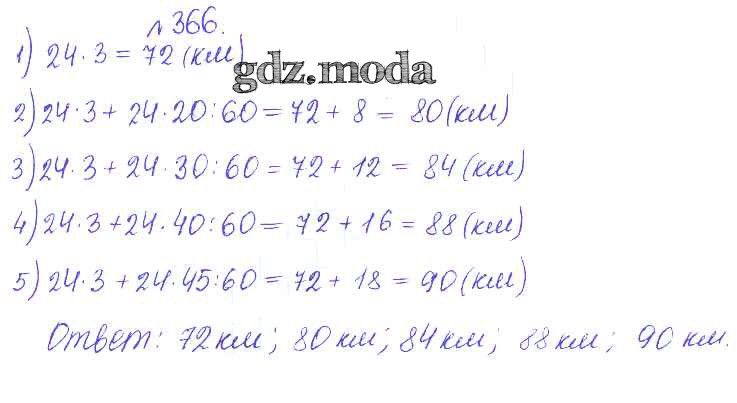 № 366.
1) 24·3 = 72 (км)
gdz.moda
2) 24·3 + 24·20:60 = 72 + 8 = 80 (км)
3) 24·3 + 24·30:60 = 72 + 12 = 84 (км)
4) 24·3 + 24·40:60 = 72 + 16 = 88 (км)
5) 24·3 + 24·45:60 = 72 + 18 = 90 (км)
Ответ: 72 км; 80 км; 84 км; 88 км; 90 км.